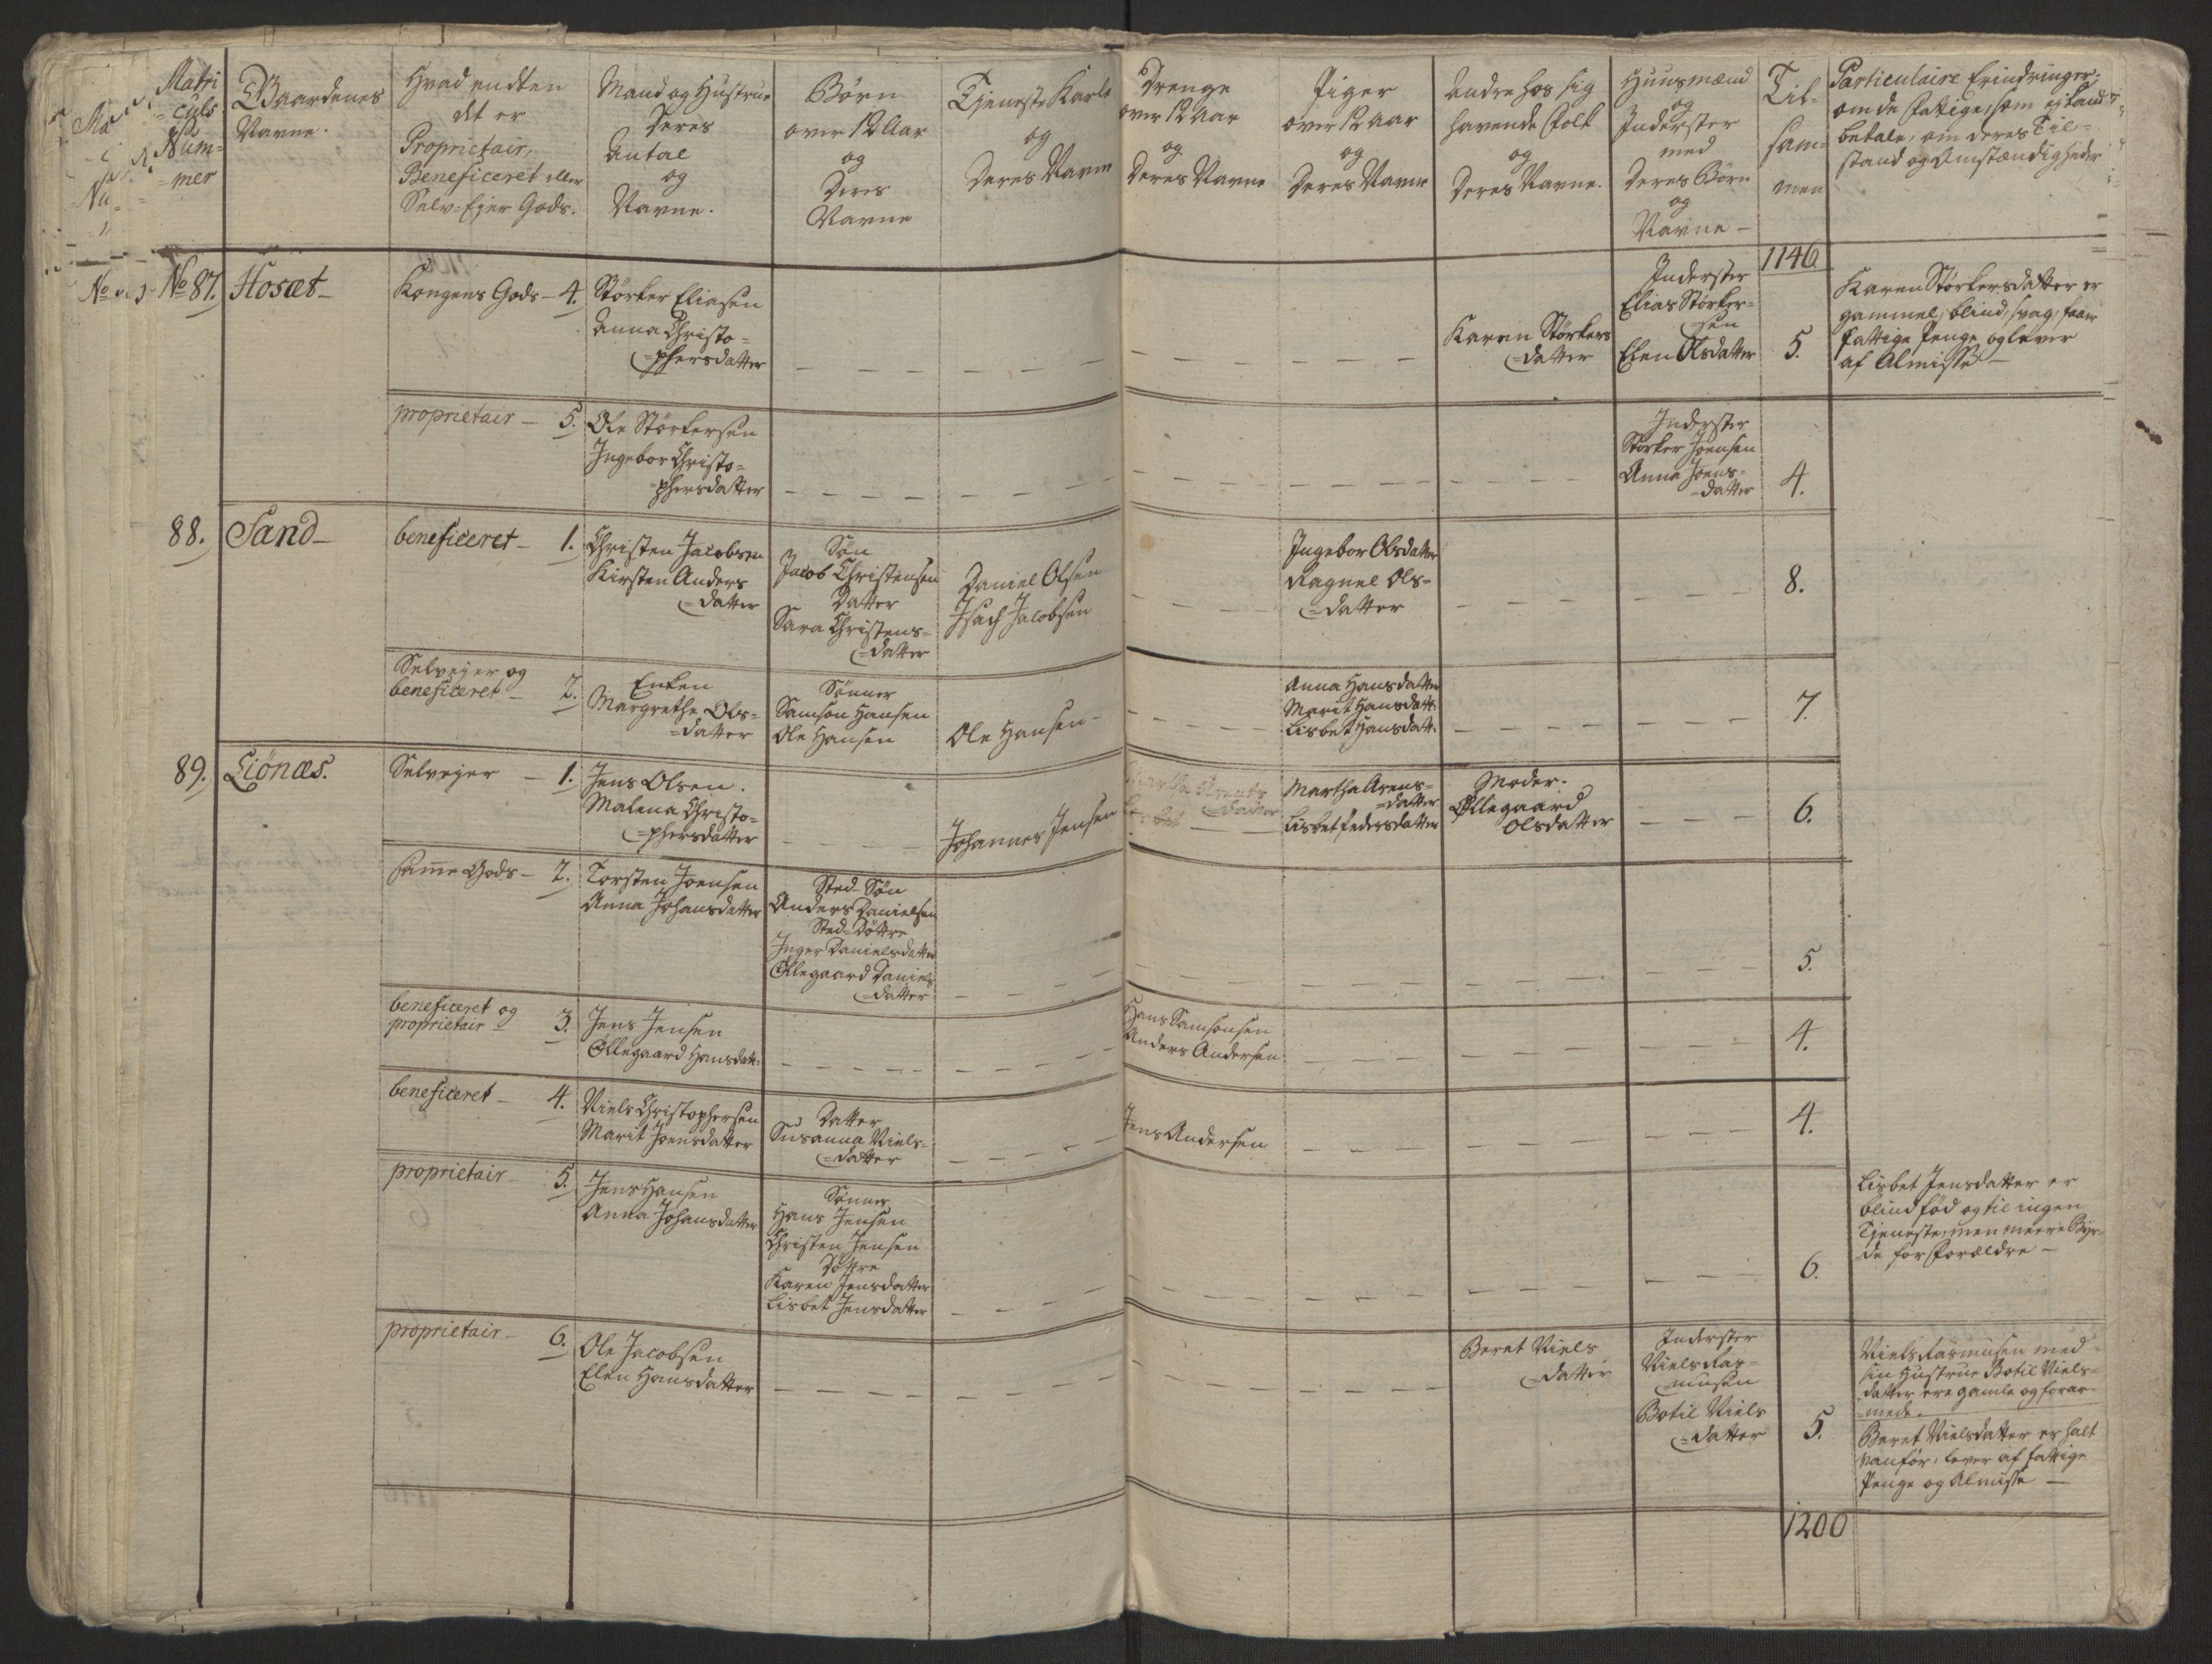 Matri
culs
Num=
=mer
Gaardenes
Navne.
Hvad endten
det er
Proprietair,
Beneficeret eller
Selv=Ejer Gods.
Mand og Hustrue
Deres
Antal
og
Navne.
Børn
over 12 Aar
og
Deres
Navne
Tjeneste Karle
og
Deres Navne
Drenge
over 12 Aar
og
Deres Navne
Piger
over 12 Aar
og
Deres Navne
Andre hos sig
havende Folk
og
Deres Navne.
Huusmænd
og
Inderster
med
Deres Børn
og
Navne –
Til=
sam=
men
Particulaire Erindringer;
om de Fattige, som ej kand
betale, om deres Til=
stand og Omstændigheder
1146
No 87. Hosæt –
Kongens Gods – 4.
Størker Eliasen
Anna Christo=
=phersdatter
Karen Størkers
=datter
Inderster
Elias Størker=
=sen
Elen Olsdatter
5.
Karen Størkersdatter er
gammel, blind, svag, faar
fattige Penge og lever
af Almisse –
proprietair – 5.
Ole Størkersen
Ingebor Christo=
=phersdatter
Inderster
Størker Joensen
Anna Joens=
=datter
4.
88. Sand –
beneficeret – 1.
Christen Jacobsen
Kirsten Anders
=datter
Søn
Jacob Christensen
Datter
Sara Christens=
=datter
Daniel Olsen
Isach Jacobsen
Ingebor Olsdatter
Ragnel Ols=
=datter
8.
Selvejer og
beneficeret – 2.
Enken
Margrethe Ols=
=datter
Sønner
Samson Hansen
Ole Hansen
Ole Hansen –
Anna Hansdatter
Marit Hansdatt:
Lisbet Hansdatt:
7.
89. Liönæs.
Selvejer – 1.
Jens Olsen.
Malena Christo=
=phersdatter
Johannes Jensen
Martha Arents
=datter
Martha Arens=
=datter
Lisbet Pedersdatter
Moder.
Ollegaard
Olsdatter
6.
samme Gods – 2.
Torsten Joensen
Anna Johansdatter
Sted-Søn
Anders Danielsen
Sted-Døttre
Inger Danielsdatter
Ollegaard Daniels
=datter
5.
beneficeret og
proprietair – 3.
Jens Jensen
Ollegaard Hansdatt:
Hans Samsonsen
Anders Andersen
4.
beneficeret – 4.
Niels Christophersen
Marit Joensdatter
Datter
Susanna Niels=
=datter
Jens Andersen
4.
proprietair – 5.
Jens Hansen
Anna Johansdatter
Sønner
Hans Jensen
Christen Jensen
Døttre
Karen Jensdatter
Lisbet Jensdatter
6.
Lisbet Jensdatter er
blind fød og til ingen
Tjeneste, men meere Byr=
=de for Forældre –
proprietair – 6.
Ole Jacobsen
Elen Hansdatter
Beret Niels
=datter
Inderster
Niels Ras=
=musen
Botil Niels
=datter
5.
Niels Rasmusen med
sin Hustrue Botil Niels=
datter ere gamle og forar=
=mede.
Beret Nielsdatter er halt
vanfør, lever af fattige
Penge og Almisse –
1200